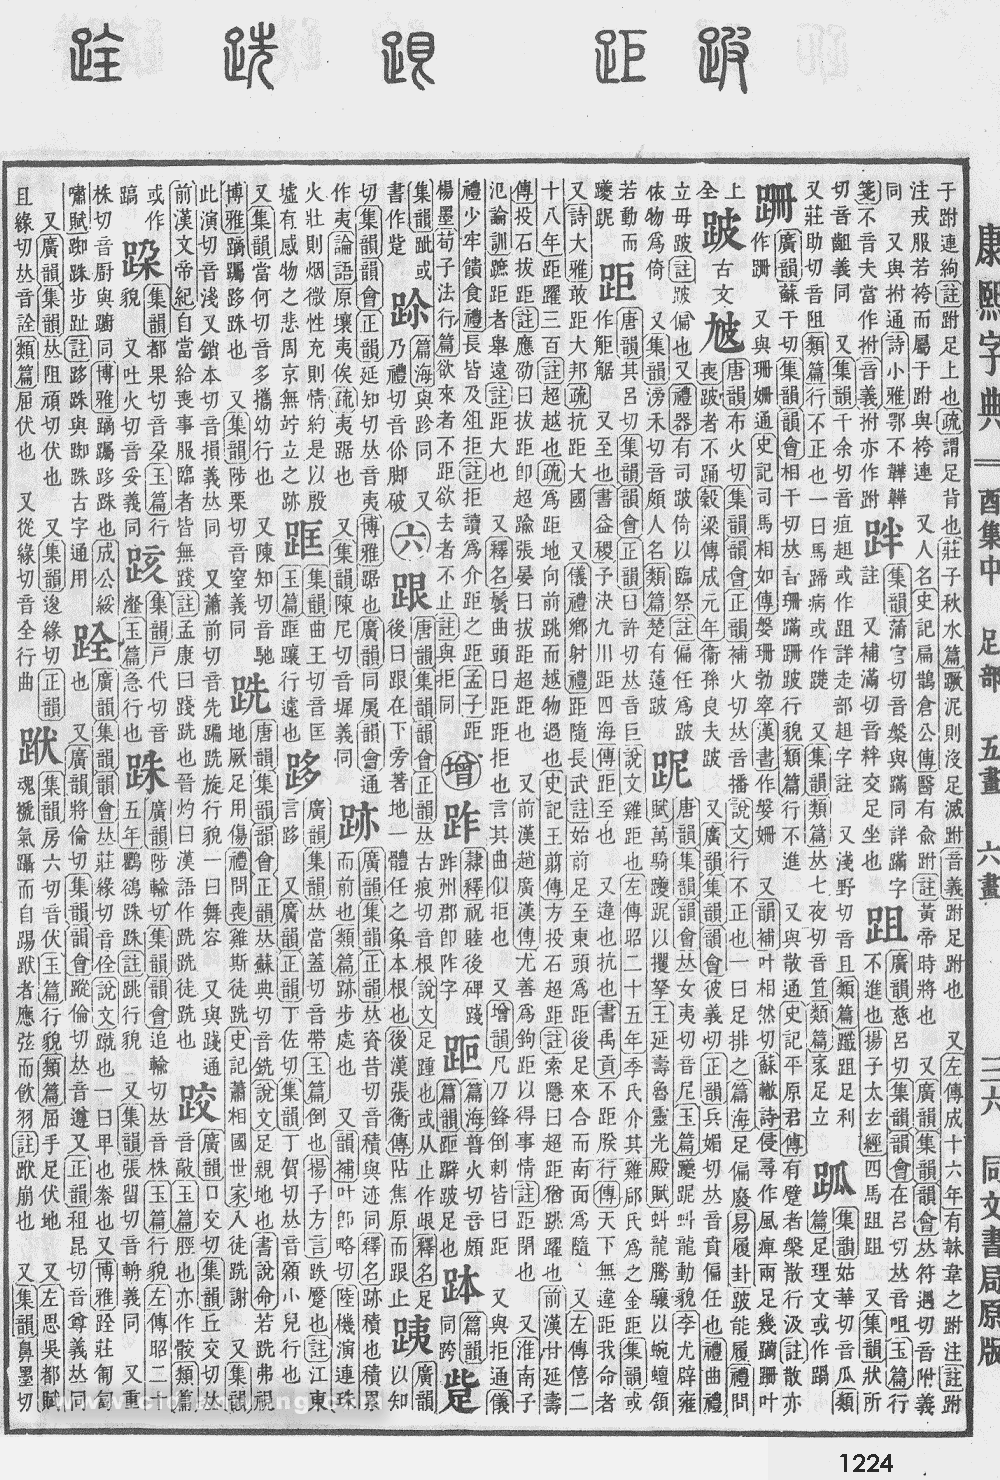 跛 距 跟 跣 跧
康熙字典 酉集中 足部 五畫 六畫 三六 同文書局原版
于跗連絇註跗足上也疏謂足背也莊子秋水篇蹶泥則沒足滅跗音義跗足跗也 又左傳成十六年有韎韋之跗注註跗
注戎服若袴而屬于跗與袴連 又人名史記扁鵲倉公傳醫有兪跗註黃帝時將也 又廣韻集韻韻會𠀤符遇切音附義
同 又與拊通詩小雅鄂不韡韡
箋不音夫當作拊音義拊亦作跗
跘
集韻蒲官切音槃與蹣同詳蹣字
註 又補滿切音粄交足坐也
跙
廣韻慈呂切集韻韻會在呂切𠀤音咀玉篇行
不進也揚子太玄經四馬跙跙 又集韻狀所
切音齟義同 又集韻千余切音疽趄或作跙詳走部趄字註 又淺野切音且類篇跙足利
又莊助切音阻類篇行不正也一曰馬蹄病或作 又集韻類篇𠀤七夜切音笡類篇袤足立
𨀣
集韻姑華切音瓜類
篇足理文或作
跚
廣韻蘇干切集韻韻會相干切𠀤音珊蹣跚跛行貌類篇行不進 又與散通史記平原君傳有躄者槃散行汲註散亦
作跚 又與珊姍通史記司馬相如傳媻珊勃窣漢書作媻姍 又韻補叶相然切蘇轍詩侵尋作風痺兩足幾蹣跚叶
上
全
跛
古文
唐韻布火切集韻韻會正韻補火切𠀤音播說文行不正也一曰足排之篇海足偏廢易履卦跛能履禮問
喪跛者不踊穀梁傳成元年衞孫良夫跛 又廣韻集韻韻會彼義切正韻兵媚切𠀤音賁偏任也禮曲禮
立毋跛註跛偏也又禮器有司跛倚以臨祭註偏任爲跛
依物爲倚 又集韻滂禾切音頗人名類篇楚有薳跛
跜
唐韻集韻韻會𠀤女夷切音尼玉篇躨跜虯龍動貌李尤辟雍
賦萬騎躨跜以攫拏王延壽魯靈光殿賦虯龍騰驤以蜿蟺頷
若動而
躨跜
距
唐韻其呂切集韻韻會正韻臼許切𠀤音巨說文雞距也左傳昭二十五年季氏介其雞郈氏爲之金距集韻或
作𧣒䠓 又至也書益稷予決九川距四海傳距至也 又違也抗也書禹貢不距朕行傳天下無違距我命者
又詩大雅敢距大邦疏抗距大國 又儀禮鄕射禮距隨長武註始前足至東頭爲距後足來合而南面爲隨 又左傳僖二
十八年距躍三百註超越也疏爲距地向前跳而越物過也史記王翦傳方投石超距註索隱曰超距猶跳躍也前漢甘延壽
傳投石拔距註應劭曰拔距卽超踰張晏曰拔距超距也 又前漢趙廣漢傳尤善爲鉤距以得事情註距閉也 又淮南子
氾論訓蹠距者舉遠註距大也 又釋名鬢曲頭曰距距拒也言其曲似拒也 又增韻凡刀鋒倒刺皆曰距 又與拒通儀
禮少牢饋食禮長皆及俎拒註拒讀爲介距之距孟子距
楊墨荀子法行篇欲來者不距欲去者不止註與拒同
增
跓
隸釋祝睦後碑
州郡卽字
𧿼
篇海普火切音頗
篇韻跛足也
䟦
篇韻
同跨
𧿹
集韻𧿹或
書作㱔
跈
篇海與跉同 又
乃禮切音你脚破
六
跟
唐韻集韻韻會正韻𠀤古痕切音根說文足踵也或从止作𣥦釋名足
後曰跟在下旁著地一體任之象本根也後漢張衡傳阽焦原而跟止
跠
廣韻
以知
切集韻韻會正韻延知切𠀤音夷博雅踞也廣韻同𡲕韻會通
作夷論語原壤夷俟疏夷踞也 又集韻陳尼切音墀義同
跡
廣韻集韻正韻𠀤資昔切音積與迹同釋名跡積也積累
而前也類篇跡步處也 又韻補叶卽略切陸機演連珠
火壯則烟微性充則情約是以殷
墟有感物之悲周京無竚立之跡
𨀕
集韻曲王切音匡
玉篇𨀕躟行遽也
跢
廣韻集韻𠀤當蓋切音帶玉篇倒也揚子方言跌蹷也註江東
言跢 又廣韻正韻丁佐切集韻丁賀切𠀤音小兒行也
又集韻當何切音多攜幼行也 又陳知切音馳
博雅蹢躅跢跦也 又集韻陟栗切音窒義同
跣
唐韻集韻韻會正韻𠀤蘇典切音銑說文足親地也書說命若跣弗視
地厥足用傷禮問喪雞斯徒跣史記蕭相國世家入徒跣謝 又集韻
此演切音淺又鎖本切音損義𠀤同 又蕭前切音先蹁跣旋行貌一曰舞容 又與踐通
前漢文帝紀自當給喪事服臨者皆無踐註孟康曰踐跣也晉灼曰漢語作跣跣徒跣也
跤
廣韻口交切集韻丘交切𠀤
音敲玉篇脛也亦作骹類篇
或作
䠎
跺
集韻都果切音朶玉篇行
貌 又吐火切音妥義同
𨀖
集韻戸代切音
瀣玉篇急行也
跦
廣韻陟輸切集韻韻會追輸切𠀤音株玉篇行貌左傳昭二十
五年鸜鵒跦跦註跳行貌 又集韻張留切音輈義同 又重
株切音厨與躕同博雅蹢躅跢跦也成公綏
嘯賦踟跦步趾註跢跦與踟跦古字通用
跧
廣韻集韻韻會𠀤莊緣切音佺說文蹴也一曰卑也絭也又博雅跧莊匍匐
也 又廣韻將倫切集韻韻會蹤倫切𠀤音遵 又正韻租昆切音尊義𠀤同
又廣韻集韻𠀤阻頑切伏也 又集韻逡緣切正韻
且緣切𠀤音詮類篇屈伏也 又從緣切音全行曲
䟮
集韻房六切音伏玉篇行貌類篇屈手足伏地 又左思吳都賦
魂褫氣懾而自踢䟮者應弦而飮羽註䟮崩也 又集韻鼻墨切
1224